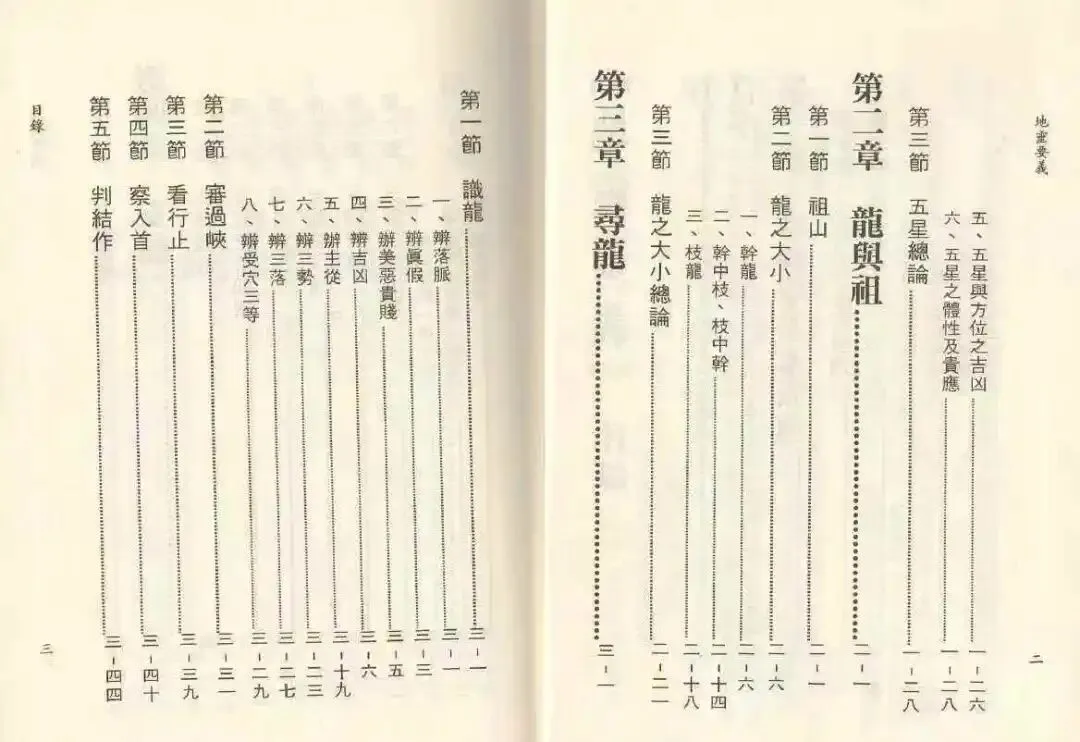 地靈要義
五、五星與方位之吉凶 一-二六
六、五星之體性及貴應 一-二八
第三節 五星總論 一-二八
第二章 龍與祖 二-一
第一節 祖山 二-一
第二節 龍之大小 二-六
一、幹龍 二-六
二、幹中枝、枝中幹 二-十四
三、枝龍 二-十八
第三節 龍之大小總論 二-二一
第三章 尋龍 三-一
二
第一節 識龍 三-一
一、辨落脈 三-一
二、辨眞假 三-三
三、辦美惡貴賤 三-五
四、辨吉凶 三-六
五、辦主從 三-十九
六、辨三勢 三-二三
七、辨三落 三-二七
八、辨受穴三等 三-二九
第二節 審過峽 三-三一
第三節 看行止 三-三九
第四節 察入首 三-四十
第五節 判結作 三-四四
目錄
三